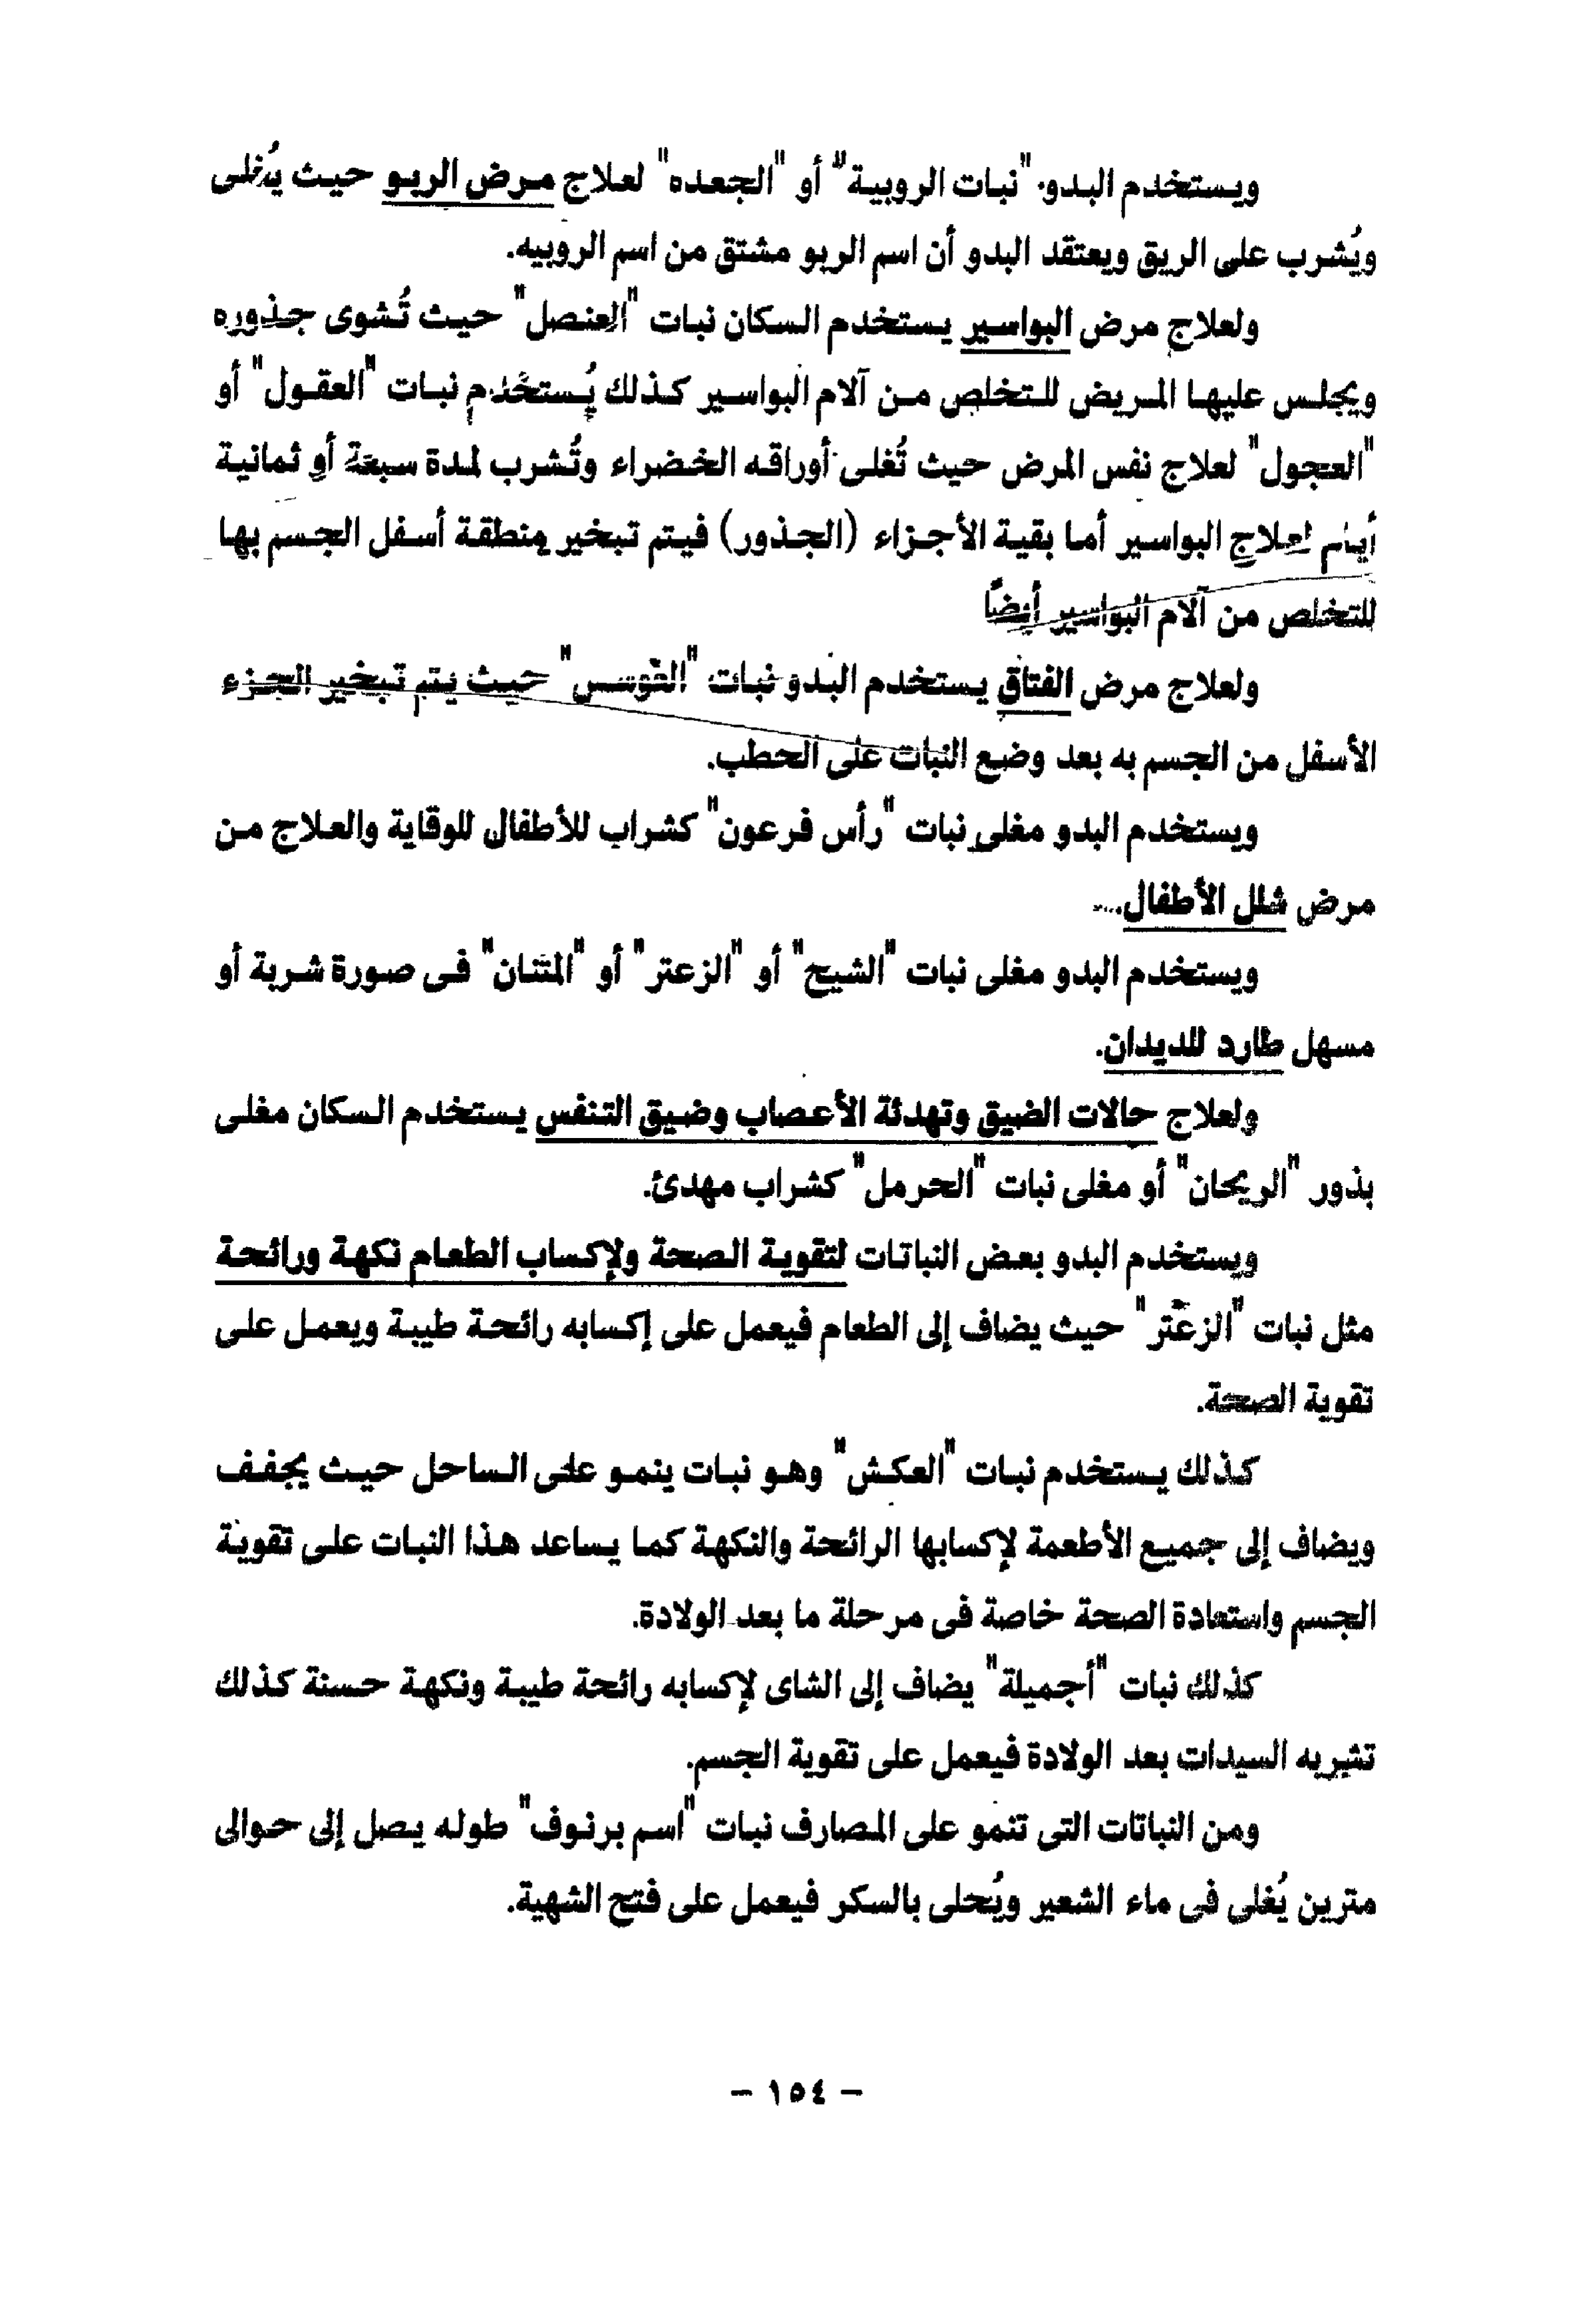 ويستخدم البدو "نبات الروبية" أو "الجعده" لعلاج مرض الربو حيث يُغلى
ويُشرب على الريق ويعتقد البدو أن اسم الربو مشتق من اسم الروبيه.
ولعلاج مرض البواسير يستخدم السكان نبات "العنصل" حيث تُشوى جذوره
ويجلس عليها المريض للتخلص من آلام البواسير كذلك يُستخدم نبات "العقول" أو
"العجول" لعلاج نفس المرض حيث تُغلى أوراقه الخضراء وتُشرب لمدة سبعة أو ثمانية
أيام لعلاج البواسير أما بقية الأجزاء (الجذور) فيتم تبخير منطقة أسفل الجسم بها
للتخلص من آلام البواسير أيضاً
ولعلاج مرض الفتاق يستخدم البدو نبات "القوسس" حيث يتم تبخير الجزء
الأسفل من الجسم به بعد وضع النبات على الحطب.
ويستخدم البدو مغلى نبات "رأس فرعون" كشراب للأطفال للوقاية والعلاج من
مرض شلل الأطفال.
ويستخدم البدو مغلى نبات "الشيح" أو "الزعتر" أو "المثنان" فى صورة شربة أو
مسهل طارد للديدان.
ولعلاج حالات الضيق وتهدئة الأعصاب وضيق التنفس يستخدم السكان مغلى
بذور "الريحان" أو مغلى نبات "الحرمل" كشراب مهدئ.
ويستخدم البدو بعض النباتات لتقوية الصحة ولإكساب الطعام نكهة ورائحة
مثل نبات "الزعتر" حيث يضاف إلى الطعام فيعمل على إكسابه رائحة طيبة ويعمل على
تقوية الصحة.
كذلك يستخدم نبات "العكش" وهو نبات ينمو على الساحل حيث يجفف
ويضاف إلى جميع الأطعمة لإكسابها الرائحة والنكهة كما يساعد هذا النبات على تقوية
الجسم واستعادة الصحة خاصة فى مرحلة ما بعد الولادة.
كذلك نبات "أجميلة" يضاف إلى الشاى لإكسابه رائحة طيبة ونكهة حسنة كذلك
تشربه السيدات بعد الولادة فيعمل على تقوية الجسم.
ومن النباتات التى تنمو على المصارف نبات "اسم برنوف" طوله يصل إلى حوالى
مترين يُغلى فى ماء الشعير ويُحلى بالسكر فيعمل على فتح الشهية.
- ١٥٤ -